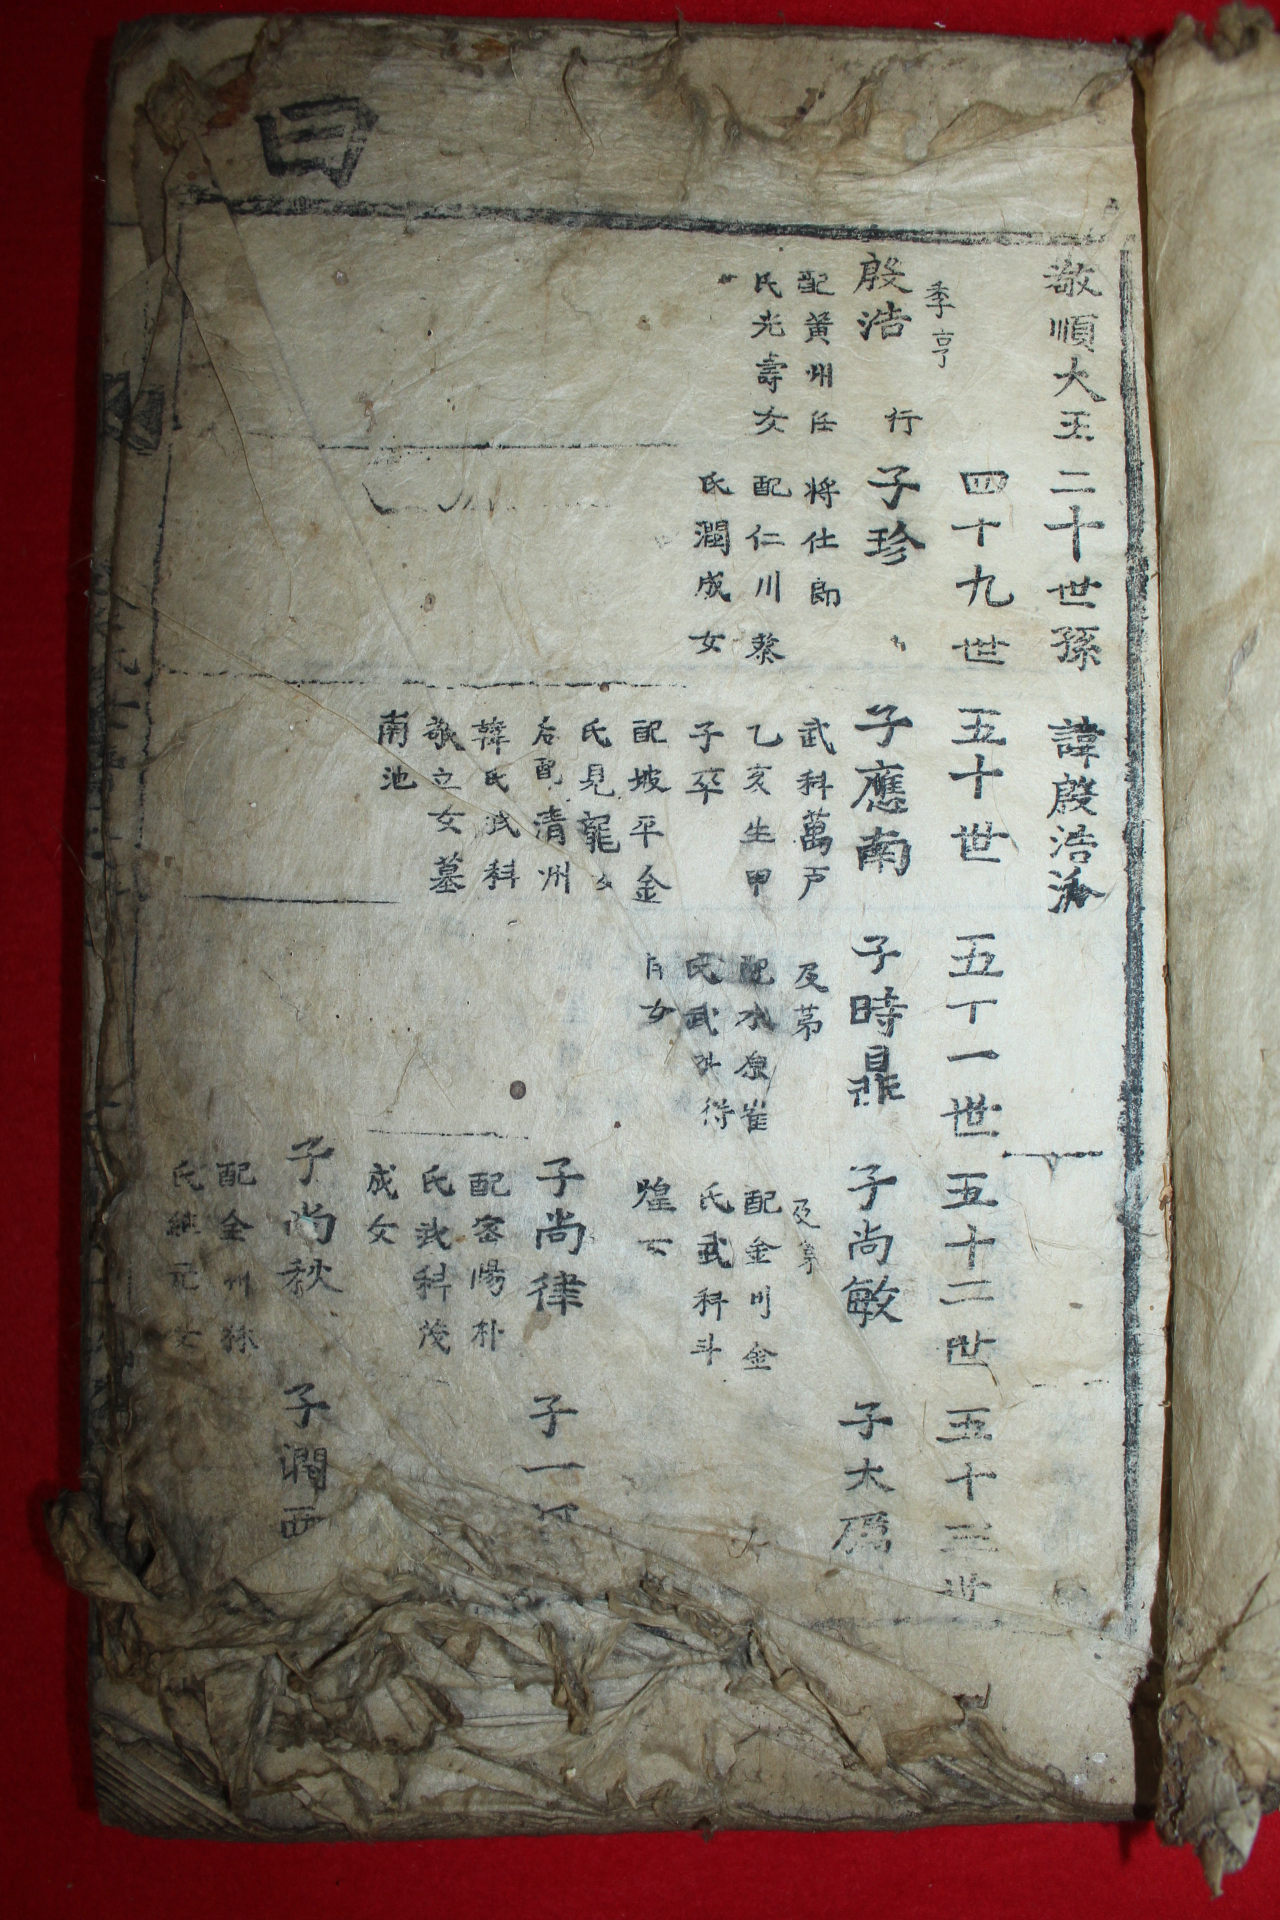 曰
敬順大王二十世孫 諱殷浩派
四十九世
五十世
五十一世
五十二世
五十三世
季亨
殷浩
行
配黃州任
氏光壽女
子珍
將仕郎
配仁川蔡
氏潤成女
子應南
武科萬戶
乙亥生甲
子卒
配坡平金
氏見龍女
后配清州
韓氏武科
敬立女墓
南池
子時鼎
及苐
配水原崔
氏武科得
女
子尚敏
及苐
配金川金
氏武科斗
煌女
子大
子尚律
配密陽朴
氏武科茂
成女
子一
子尚秋
配全州
氏繼元女
子潤西